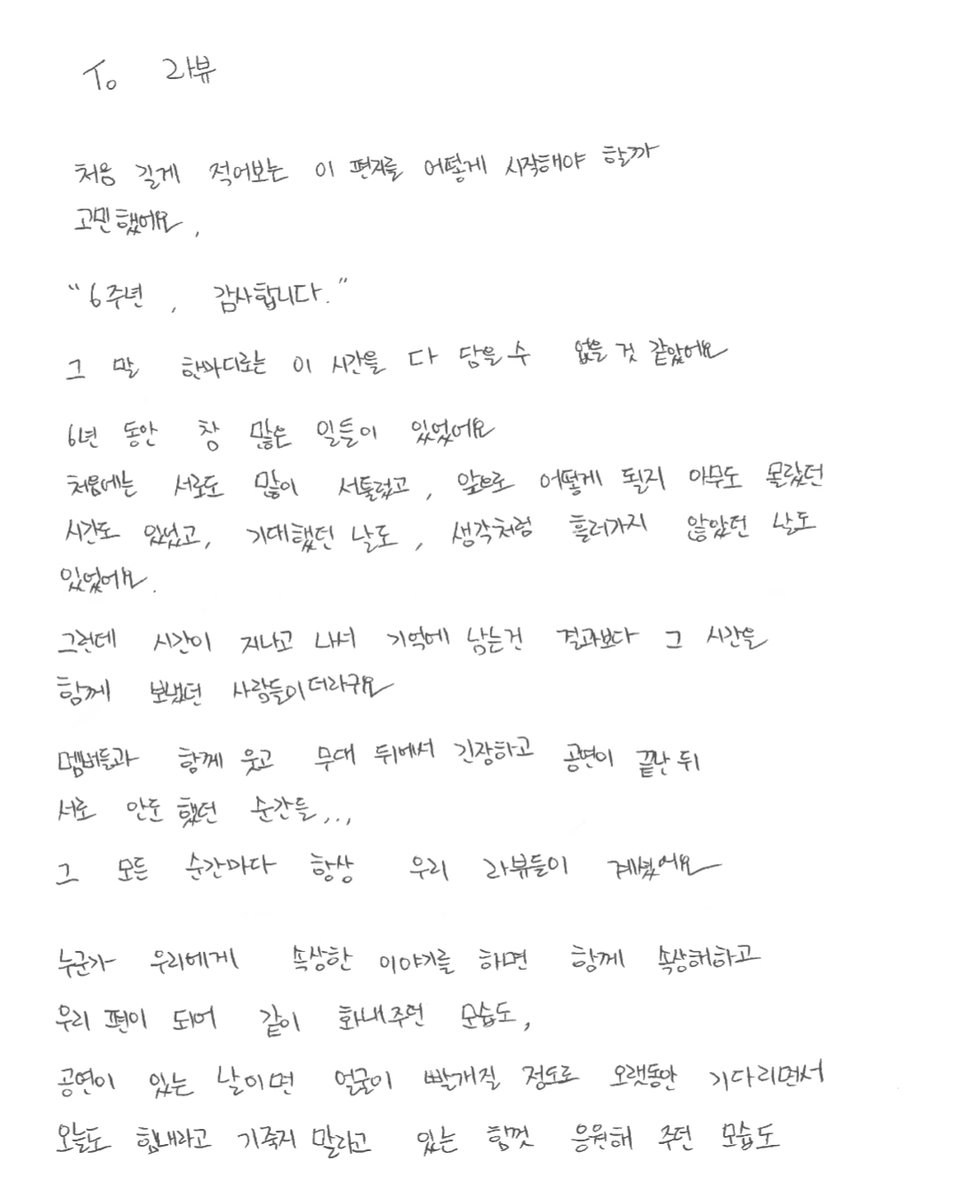 To 라뷰
처음 길게 적어보는 이 편지를 어떻게 시작해야 할까
고민했어요,
"6주년, 감사합니다."
그 말 한마디로는 이 시간을 다 담을 수 없을 것 같았어요
6년 동안 참 많은 일들이 있었어요
처음에는 서로도 많이 서툴렀고, 앞으로 어떻게 될지 아무도 몰랐던
시간도 있었고, 기대했던 날도, 생각처럼 흘러가지 않았던 날도
있었어요.
그런데 시간이 지나고 나서 기억에 남는건 결과보다 그 시간을
함께 보냈던 사람들이더라구요
멤버들과 함께 웃고 무대 뒤에서 긴장하고 공연이 끝난 뒤
서로 안도 했던 순간들,,,
그 모든 순간마다 항상 우리 라뷰들이 계셨어요
누군가 우리에게 속상한 이야기를 하면 함께 속상해하고
우리 편이 되어 같이 화내주던 모습도,
공연이 있는 날이면 얼굴이 빨개질 정도로 오랫동안 기다리면서
오늘도 힘내라고 기죽지 말라고 있는 힘껏 응원해 주던 모습도